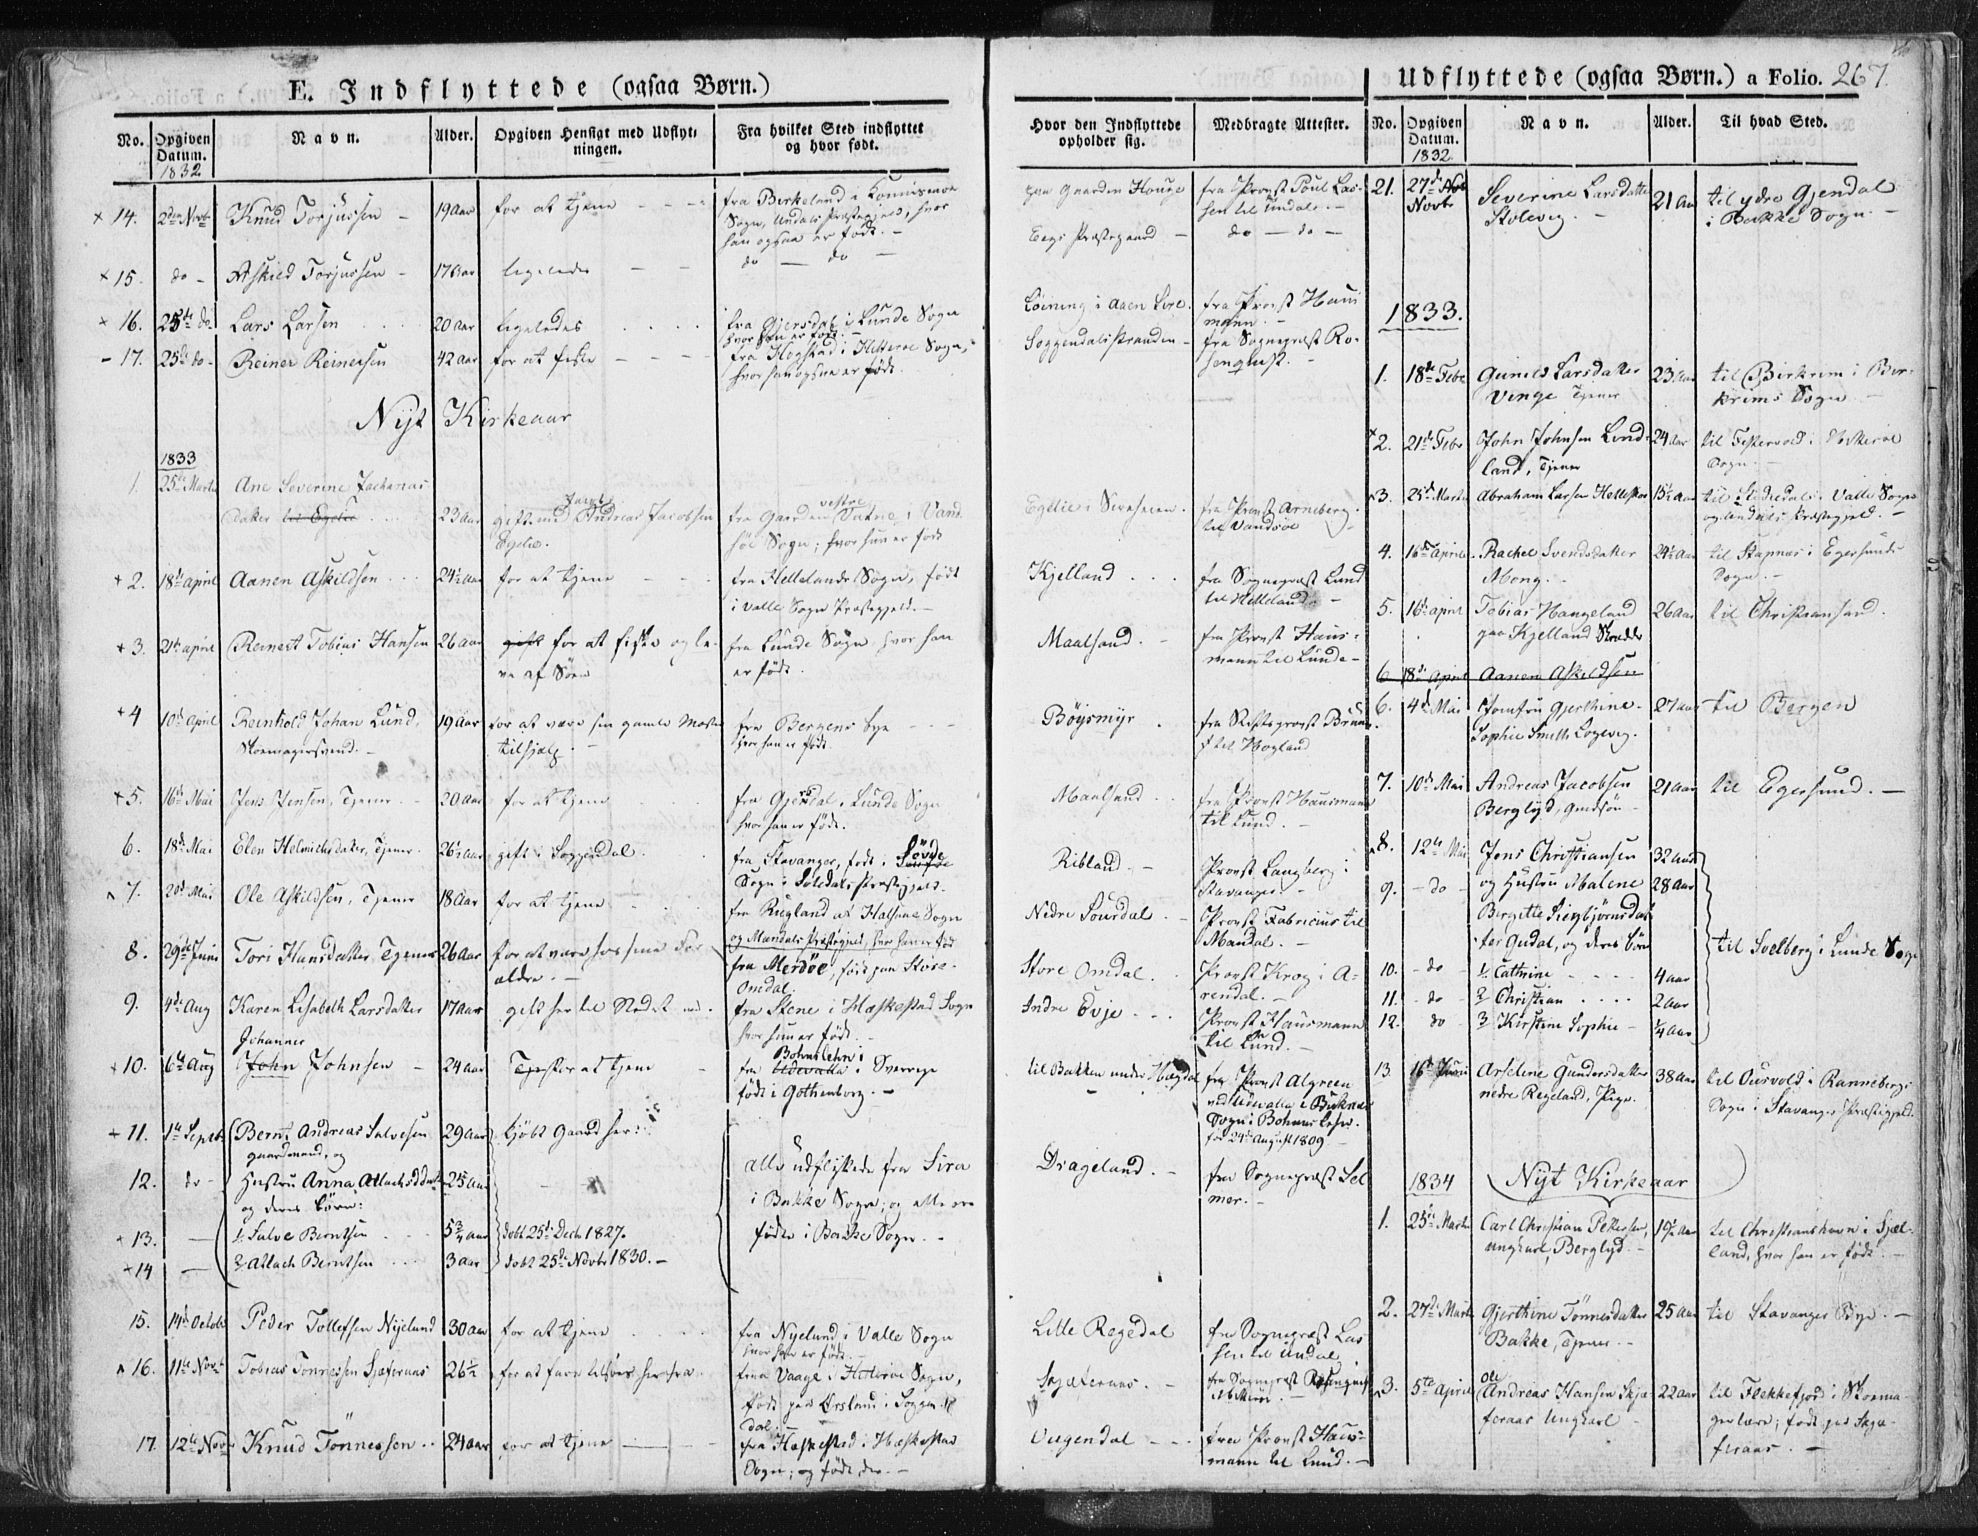 E. Indflyttede (ogsaa Børn.)
No. Opgiven Datum. 1832 Navn. Alder. Opgiven Hensigt med Udflytningen. Fra hvilket Sted indflyttet og hvor født.
× 14. 2den Novbr Knud Torjussen - 19 Aar for at tjene - - - fra Birkeland i
Sogn, Undals Præstegjeld, hvor
han ogsaa er født. -
× 15. do - Askild Torjussen - 17 Aar ligeledes - - do - do -
× 16. 25de do Lars Larsen 20 Aar ligeledes fra Gjersdal i Lunde Sogn
hvor han er født. -
- 17. 25de do - Reiner Reinersen 42 Aar for at fiske - - - fra Hogstad i Hitterøe Sogn,
hvor han ogsaa er født.
Nyt Kirkeaar
1833
1. 25de Marts Ane Severine Zacharias
datter 23 Aar gift med Andreas Jacobsen
Egelie.
fra Gaarden vestre Vatne i Vand-
søe Sogn; hvor hun er født
+ 2. 18de April Aanen Askildsen 24½ Aar for at tjene - - fra Hellelands Sogn, født
i Valle Sogn Præstegjeld. -
+ 3. 21de April Reinert Tobias Hansen 26 Aar gift for at fiske og le-
ve af Søen
fra Lunde Sogn hvor han
er født.
+ 4 10de April Reinhold Johan Lund,
Skomagersvend. -
19 Aar for at være sin gamle Moder
til hjælp. -
fra Bergens Bye - - -
hvor han er født.
+ 5. 16de Mai Jens Jensen, Tjener - 20 Aar for at tjene fra Gjersdal i Lunde Sogn
hvor han er født.
6. 18de Mai Elen Helmichsdatter, Tjener 26½ Aar gift i Soggendal. fra Stavanger, født i
Sogn i Præstegjeld.
7. 20de Mai Ole Askildsen, Tjener 18 Aar for at tjene - fra Rugland af Halsaae Sogn
og Mandals Præstegjeld, hvor han er født
8. 29de Juni Tori Hansdatter Tjener 26 Aar for at være hos sine For-
ældre. -
fra Merdøe, født paa Store-
Omdal.
9. 4de Aug Karen Lisabeth Larsdatter 17 Aar fra Stene i Hæskestad Sogn
hvor hun er født. -
Johannes
+ 10. 6te Aug John Johnsen - 24 Aar for at tjene - fra Bohuslehn i Sverrige
født i Gothenborg. -
+ 11. 1ste Septbr Bernt Andreas Salvesen
gaardmand, og
29 Aar kjøbt Gaard her:
12. do - Hustru Anna Atlachsdatter
og deres Børn:
25 Aar
× 13. - 1, Salve Berntsen 5¾ Aar døbt 25de Decbr 1827.
+ 14 - 2, Atlach Berntsen 3 Aar døbt 25de Novbr 1830. -
Alle udflyttede fra Sira
i Bakke Sogn, og alle ere
fødte i Bakke Sogn. -
15. 14de October Peder Tollefsen Nyelund 30 Aar for at tjene fra Nyelund i Valle Sogn
hvor han er født. -
16. 11te Novbr Tobias Tønnessen Skjæferaas 26½ fra Vaage i Hitterøe Sogn,
født paaØrsland i Soggen-
dal. -
17 12te Novbr Knud Tønnessen 24 Aar for at tjene fra Hæskestad i Hæskestad
Sogn; og født der. -
Udflyttede (ogsaa Børn.) a Folio. 267.
Hvor den Indflyttede opholder sig. Medbragte Attester.
paa Gaarden Houge fra Provst Poul Las-
sen til Undal. -
Eegs Præstegaard - do - do -
Løining i Aaen Sire. fra Provst Haus
mann. -
Soggendalsstranden - fra Sognepræst Ro-
senqvist. -
Egelie i Sireheien. fra Provst Arneberg.
til Vandsøe
Kjelland fra Sognepræst Lund
til Helleland. -
Maalsand. fra Provst Haus-
mann til Lunde -
Bøysmyr fra Stiftsprovst
til Hogland
Maalsand fra Provst Hausmann
til Lund. -
Ribland. - Provst Langberg i
Stavanger. -
Nedre Sourdal. Provst Fabricius til
Mandal. -
Store Omdal. Provst Krog i A-
rendal. -
Indre Evje. Provst Hausmann
til Lund. -
til Bakken under Hægdal fra Provst Algreen
ved Udevalla i
Sogn i Bohus Lehn.
fød 24de August 1809
Drageland. - fra Sognepræst Sel
mer. -
Lille Regedal fra Sognepræst Las
sen til Undal
Skjæferaas. - fra Sognepræst Rosenqvist
Hitterøe.
Vegendal fra Provst Haus-
mann til Lund. -
No. Opgiven Datum. 1832. Navn. Alder. Til hvad Sted.
21. 27de Novbr Severine Larsdatter
Stolevig. -
21 Aar til ydre Gjendal
i Bakke Sogn. -
1833.
1. 18de Febr Gunild Larsdatter
Vinge Tjener
23 Aar til Birkrim i Bir-
krims Sogn -
× 2. 21de Febr John Johnsen Lind-
land, Tjener
24 Aar til i Hitterøe
Sogn. -
3. 25de Marts Abraham Larsen Helleskar 15½ Aar til i Valle Sogn
og Undals Præstegjeld. -
4. 16de April Rachel Svendsdatter
Mong. -
24½ Aar til Stapnes i Egersunds
Sogn. -
5. 16de April Tobias Hangeland
paa Kjelland Skrædder
26 Aar til Christiansand.
6 18de April Aanen Askildsen
6. 4de Mai Jomfru Gjerthine
Sophie Smith Logevig.
27 Aar til Bergen
7. 10de Mai Andreas Jacobsen
Berglyd,
21 Aar til Egersund. -
8. 12te Mai Jens Christiansen 32 Aar
9. - do - og Hustru Malene
Bergitte Siegbjørnsdat-
ter Gudal, og deres børn
28 Aar
10. - do - 1, Cathrine 4 Aar
11. - do 2, Christian 2 Aar
12. do 3, Kirstine Sophie - ¼ Aar
til Svelberg i Lunde Sogn
13. 16de Juni Arseline Gundersdatter
nedre Regeland, Pige.
38 Aar til Ousvold i Ranneberg
Sogn i Stavanger Præstegjeld.
1834 Nyt Kirkeaar
1. 25de Marts Carl Christian Pettersen,
ungkarl, Berglyd. -
19½ Aar til Christianshavn i Sjæl-
land, hvor han er født. -
2. 27de Marts Gjerthine Tønnesdatter
Bakke, Tjener. -
25 Aar til Stavanger Bye. -
3. 5te April Ole
Andreas Hansen Skjæ-
feraas Ungkarl -
22 Aar til Flekkefjord i Skoma-
gerlære; født paa Skjæ-
feraas. -